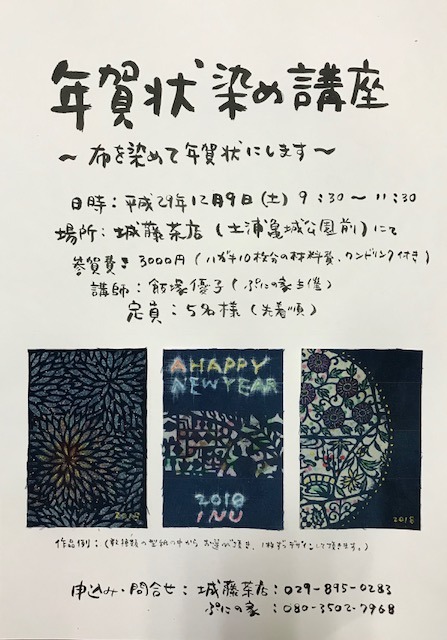 年賀状染め講座
～布を染めて年賀状にします～
日時：平成29年12月9日（土）9：30～11：30
場所：城藤茶店（土浦亀城公園前）にて
参賀費：3000円（ハガキ10枚分の材料費、ワンドリンク付き）
講師：飯塚優子（ぷにの家主催）
定員：5名様（先着順）
2018
A HAPPY
NEW YEAR
2018
INU
2018
作品例：（数種類の型紙の中からお選び頂き、1枚ずつデザインして頂きます。）
申込み・問合せ：城藤茶店：029-895-0283
ぷにの家：080-3502-7968